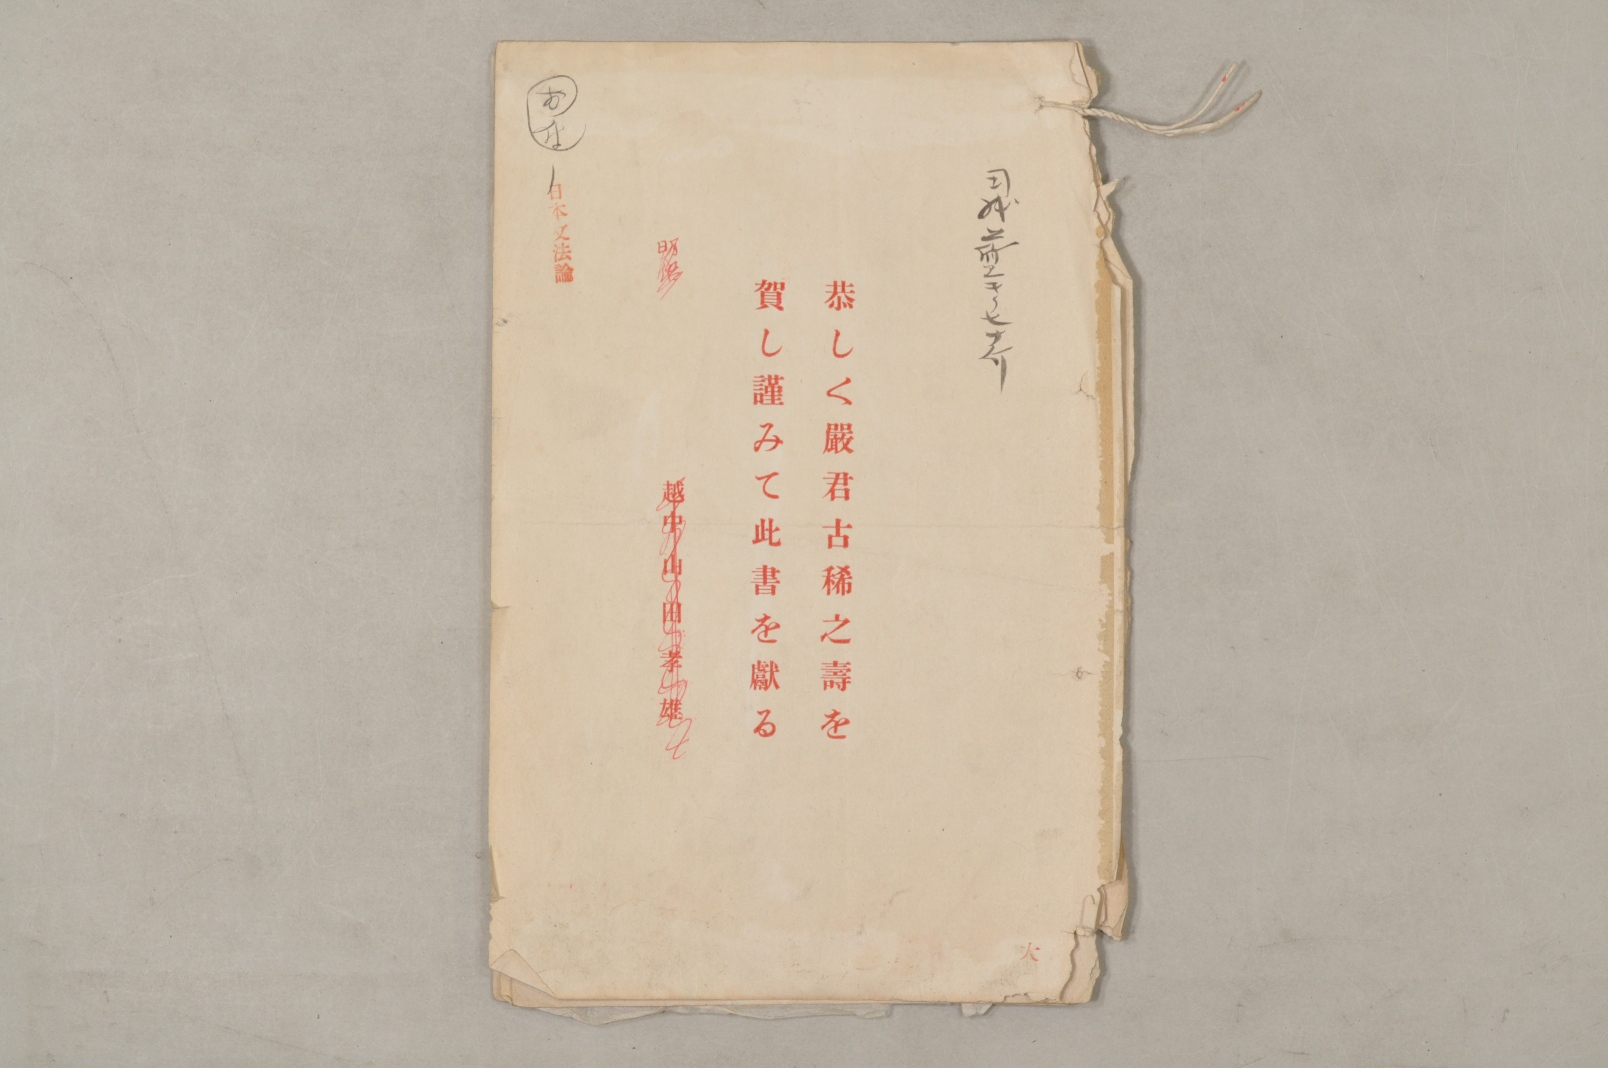 恭しく嚴君古稀之壽を
賀し謹みて此書を獻る
明治
越中山田孝雄
日本文法論
大